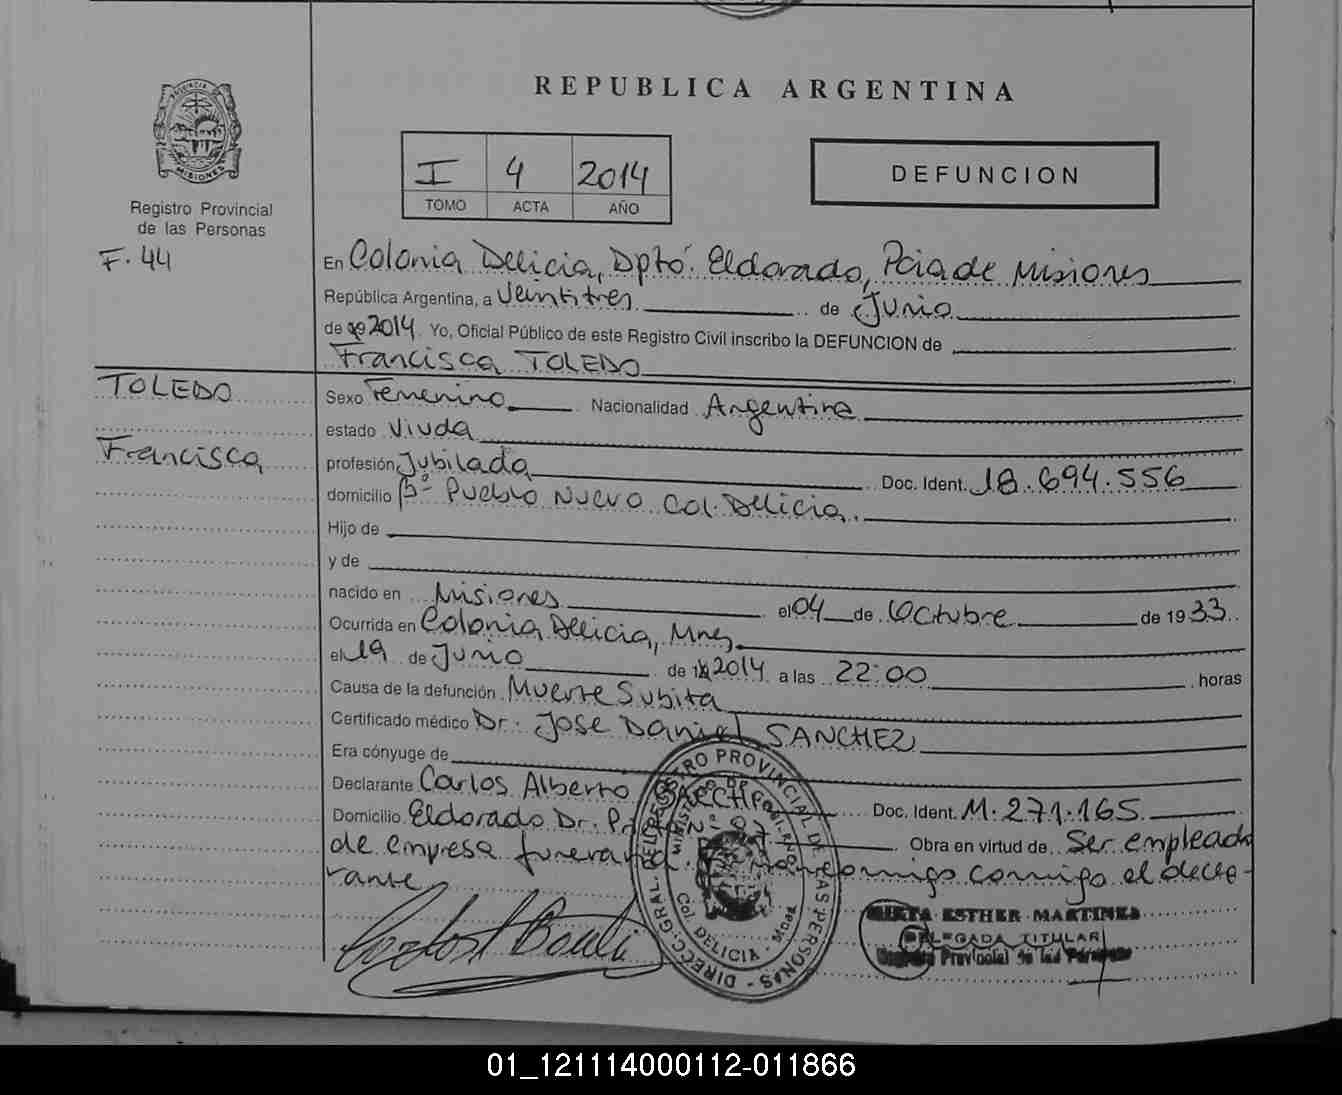 REPUBLICA ARGENTINA
PROVINCIA
MISIONES
Registro Provincial
de las Personas
F. 44
I 4 2014
TOMO ACTA AÑO
DEFUNCION
En Colonia Delicia, Dptó. Eldorado, Pcia de Misiones
República Argentina, a Veintitres de Junio
de 2014 Yo, Oficial Público de este Registro Civil inscribo la DEFUNCION de
Francisca TOLEDO
TOLEDO
Francisca
Sexo Femenino Nacionalidad Argentina
estado Viuda
profesión Jubilada Doc. Ident. 18.694.556
domicilio Bº Pueblo Nuevo Col. Delicia.
Hijo de
y de
nacido en Misiones el 04 de Octubre de 1933
Ocurrida en Colonia Delicia, Mnes
el 19 de Junio de 2014 a las 22:00 horas
Causa de la defunción Muerte Subita
Certificado médico Dr. Jose Daniel SANCHEZ
Era cónyuge de
Declarante Carlos Alberto Doc. Ident. M. 271.165
Domicilio Eldorado Dr. Obra en virtud de Ser empleado
de empresa funeraria. comigo el decla-
rante
DIREC. GRAL. DEL REGISTRO PROVINCIAL DE LAS PERSONAS
MINISTERIO DE GOBIERNO
Col. DELICIA - Mnes
MIRTA ESTHER MARTINES
DELEGADA TITULAR
Registro Provincial de las Personas
01_121114000112-011866